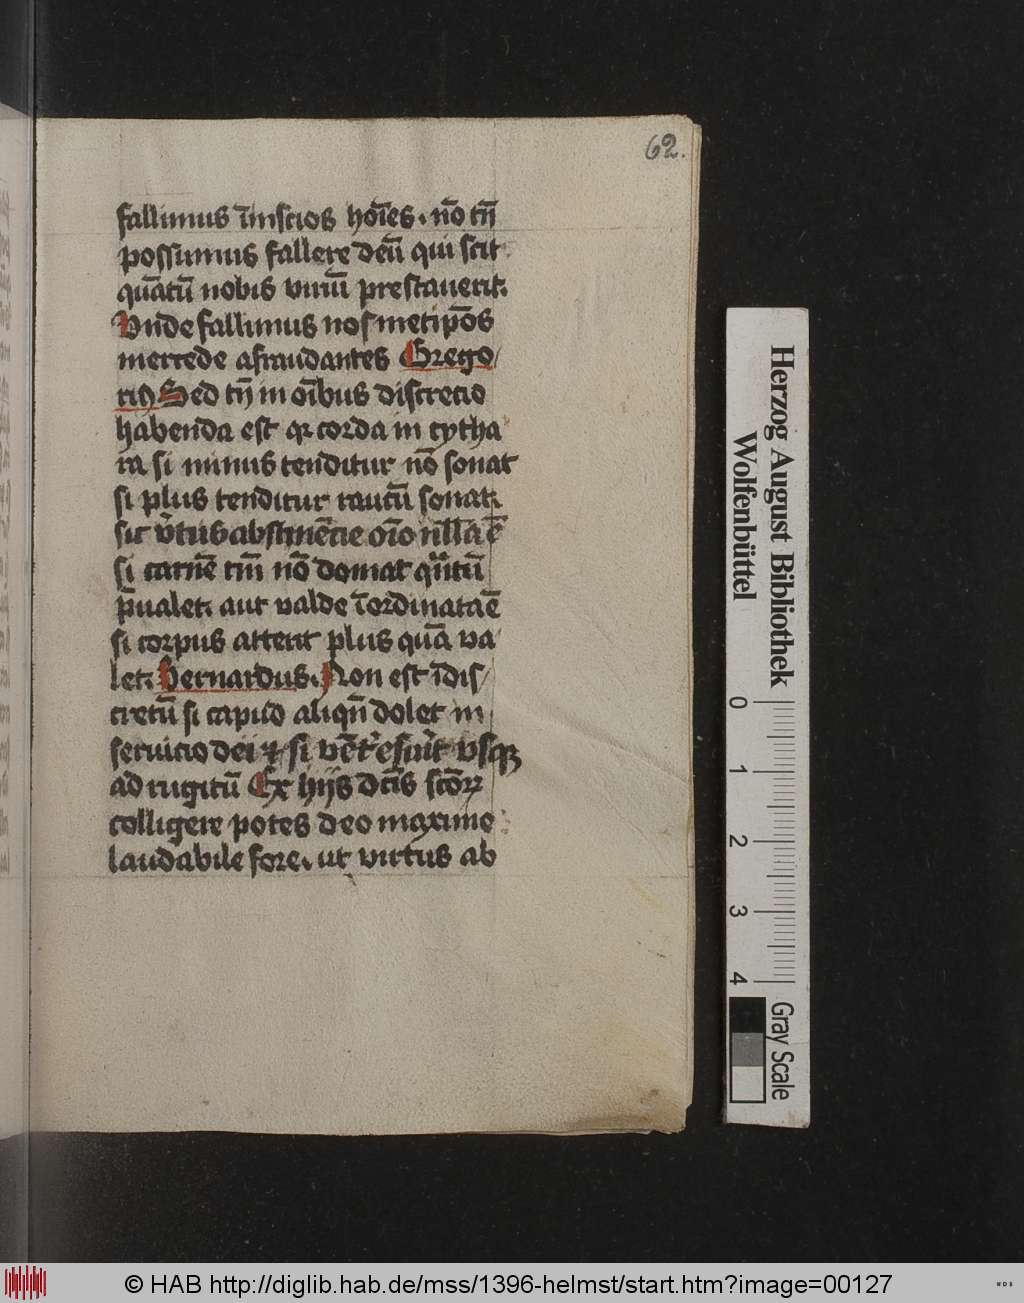 62.
fallimus īinscios hoīes. nō tn̄
possumus fallere deū qui scit
quātū nobis viriū prestauerit.
Vnde fallimus nosmetip̄os
mercede afraudantes Grego/
riꝰ Sed tn̄ in oībus discrecio
habenda est qꝛ corda in cytha
ra si minus tenditur nō sonat
si plus tenditur raucū sonat.
sic v̄tus abstinēcie oīo nlla ē
si carnē tm̄ nō domat qͣntū
p̄ualet. aut valde īordinata ē
si corpus atterit plus quā va
let. Bernardus. Non est īdis/
cretū si capud aliqn̄ dolet in
seruicio dei ⁊ si vsqꝫ
ad rugitū Ex hijs dc̄is sc̄oꝝ
colligere potes deo maxime
laudabile fore. ut virtus ab
Herzog August Bibliothek
Wolfenbüttel
0 1 2 3 4
Gray Scale
© HAB http://diglib.hab.de/mss/1396-helmst/start.htm?image=00127
WDB